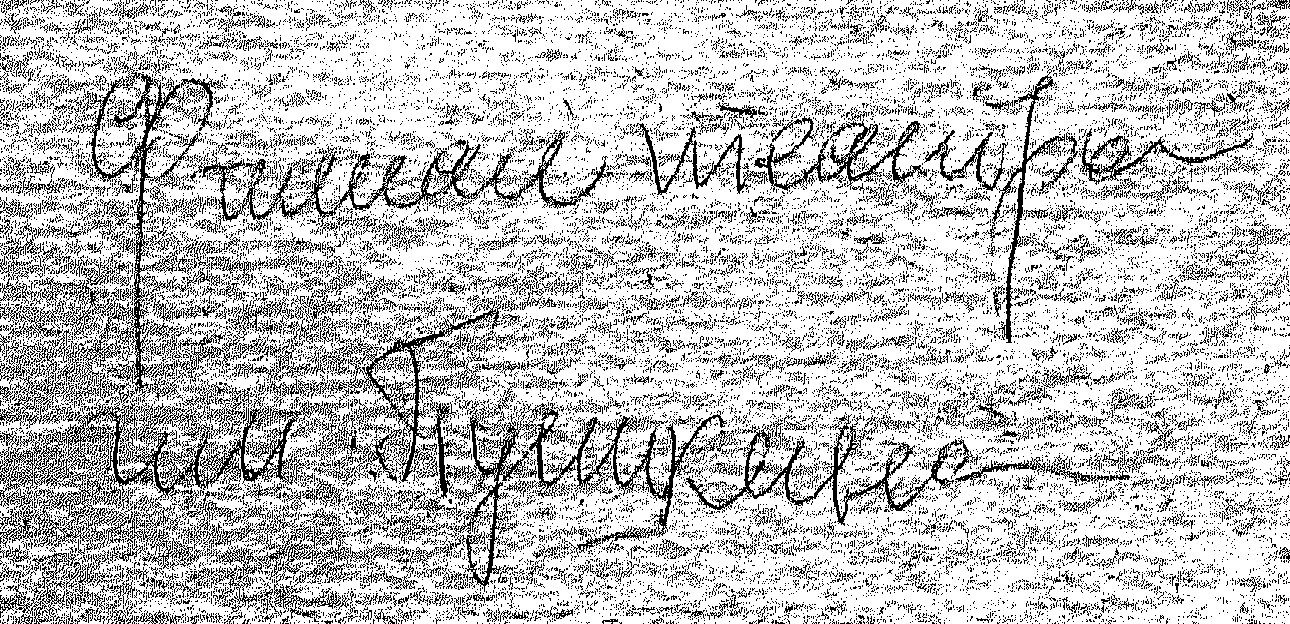 Филиал театра
им Пушкина